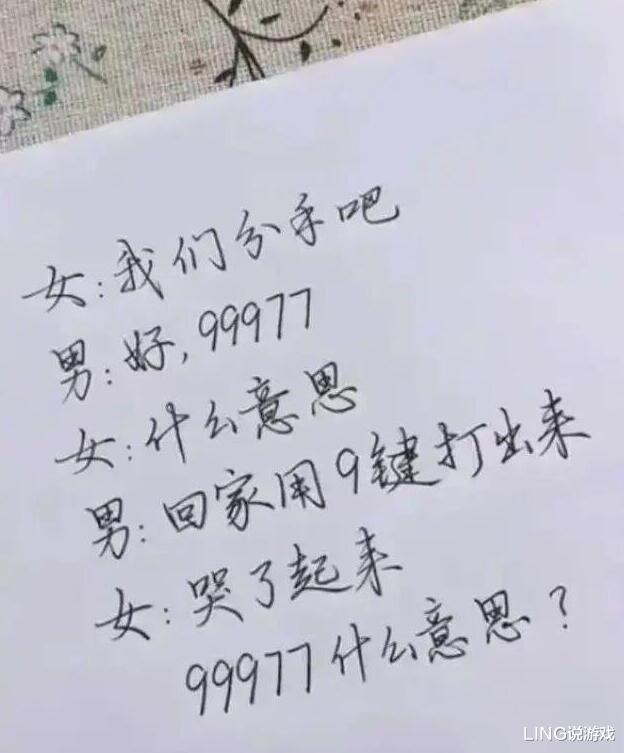 女:我们分手吧
男:好,99977
女:什么意思
男:回家用9键打出来
女:哭了起来
99977什么意思?
LING说游戏